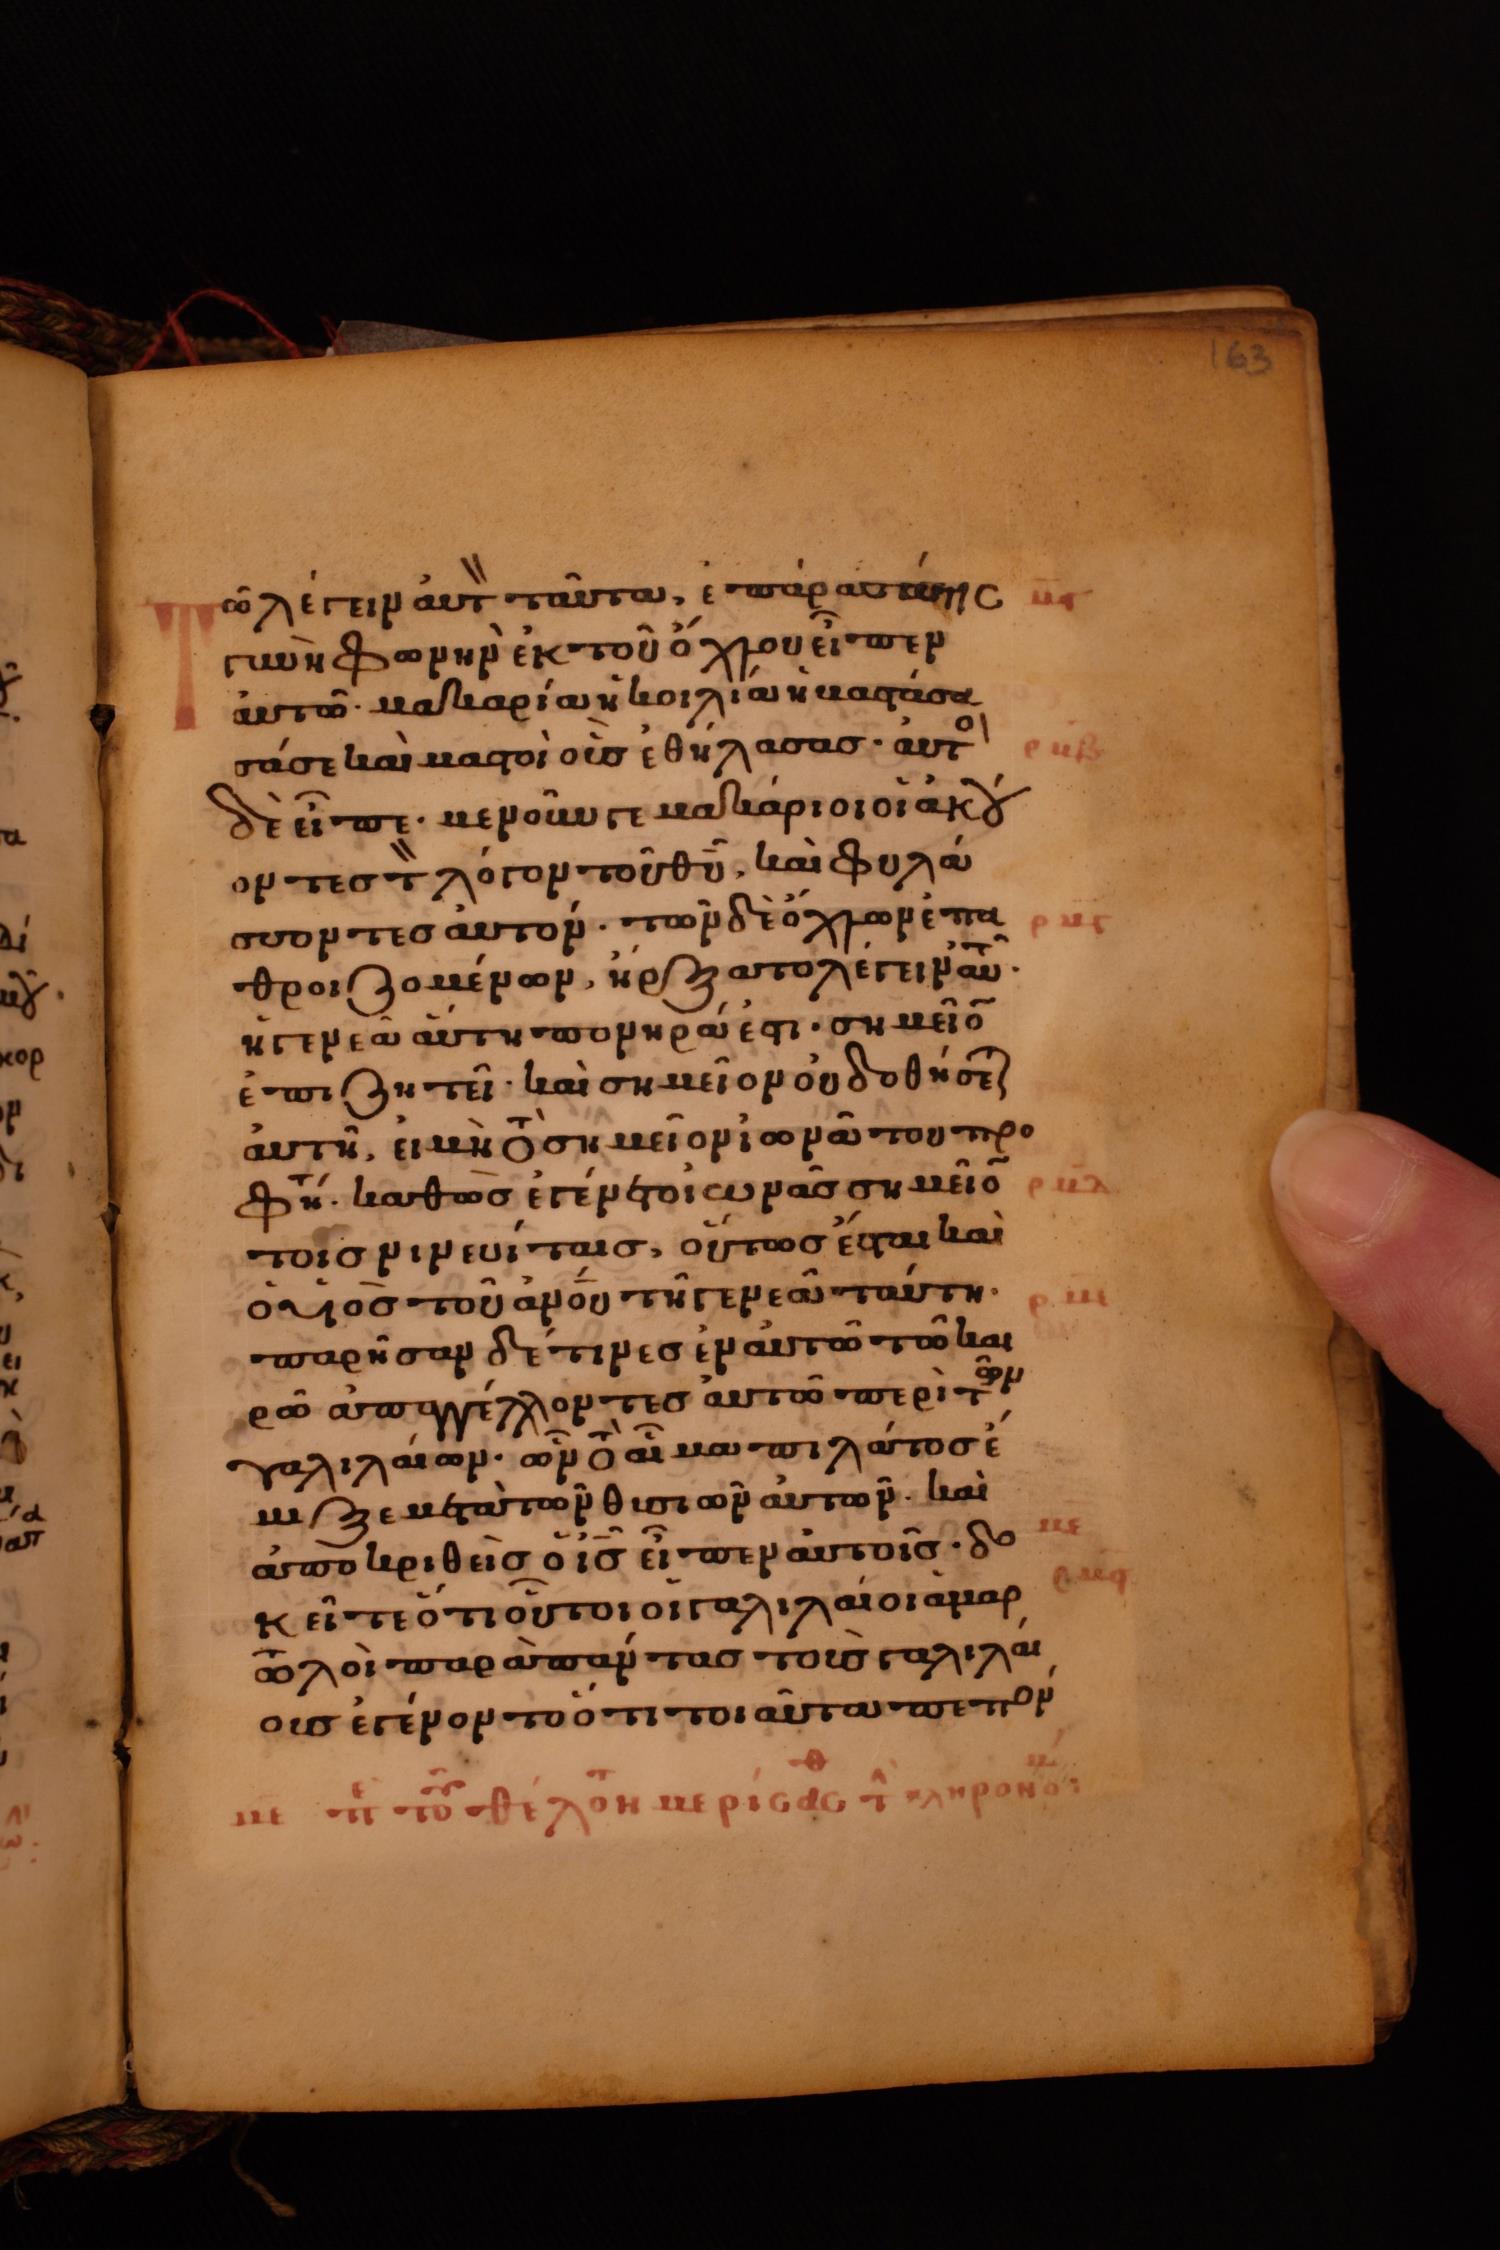 163
Τῶ λέγειν αὐτ ταῦτα, ἐπάρασά τις
γυνὴ φωνὴν ἐκ τοῦ ὄχλου εἶπεν
αὐτῶ· μακαρία ἡ κοιλία ἡ βαστάσα
σά σε καὶ μαστοὶ οὓς ἐθήλασας· αὐτὸ
δὲ εἶπε· μενοῦνγε μακάριοι οἱ ἀκού
οντες τ λόγον τοῦ θυ, καὶ φυλά
σσοντες αὐτόν· τῶν δὲ ὄχλων ἐπα
θροιζομένων, ἤρξατο λέγειν αὐτ·
ἡ γενεὰ αὕτη πονηρά ἐστι· σημεῖο
ἐπιζητεῖ· καὶ σημεῖον οὐ δοθήσετ
αὐτῆ, εἰ μὴ τὸ σημεῖον ἰωνᾶ του προ
φητ· καθὼς ἐγένετο ἰωνᾶς σημεῖο
τοις νινευίταις, οὕτως ἔσται καὶ
ὁ υἱὸς τοῦ ἀνου τῆ γενεᾶ ταύτη·
παρῆσαν δέ τινες ἐν αὐτῶ τῶ και
ρῶ ἀπαγγέλλοντες αὐτῶ περὶ τῶν
γαλιλαίων· ὧν τὸ αἷμα πιλάτος ἔ
μιξε μετὰ τῶν θυσιῶν αὐτῶν· καὶ
ἀποκριθεὶς ὁ ις εἶπεν αὐτοῖς· δο
κεῖτε ὅτι οὗτοι οἱ γαλιλαίοι ἁμαρ
τωλοὶ παρὰ πάντας τοὺς γαλιλαί
ους ἐγένοντο ὅτι τοιαῦτα πεπόν